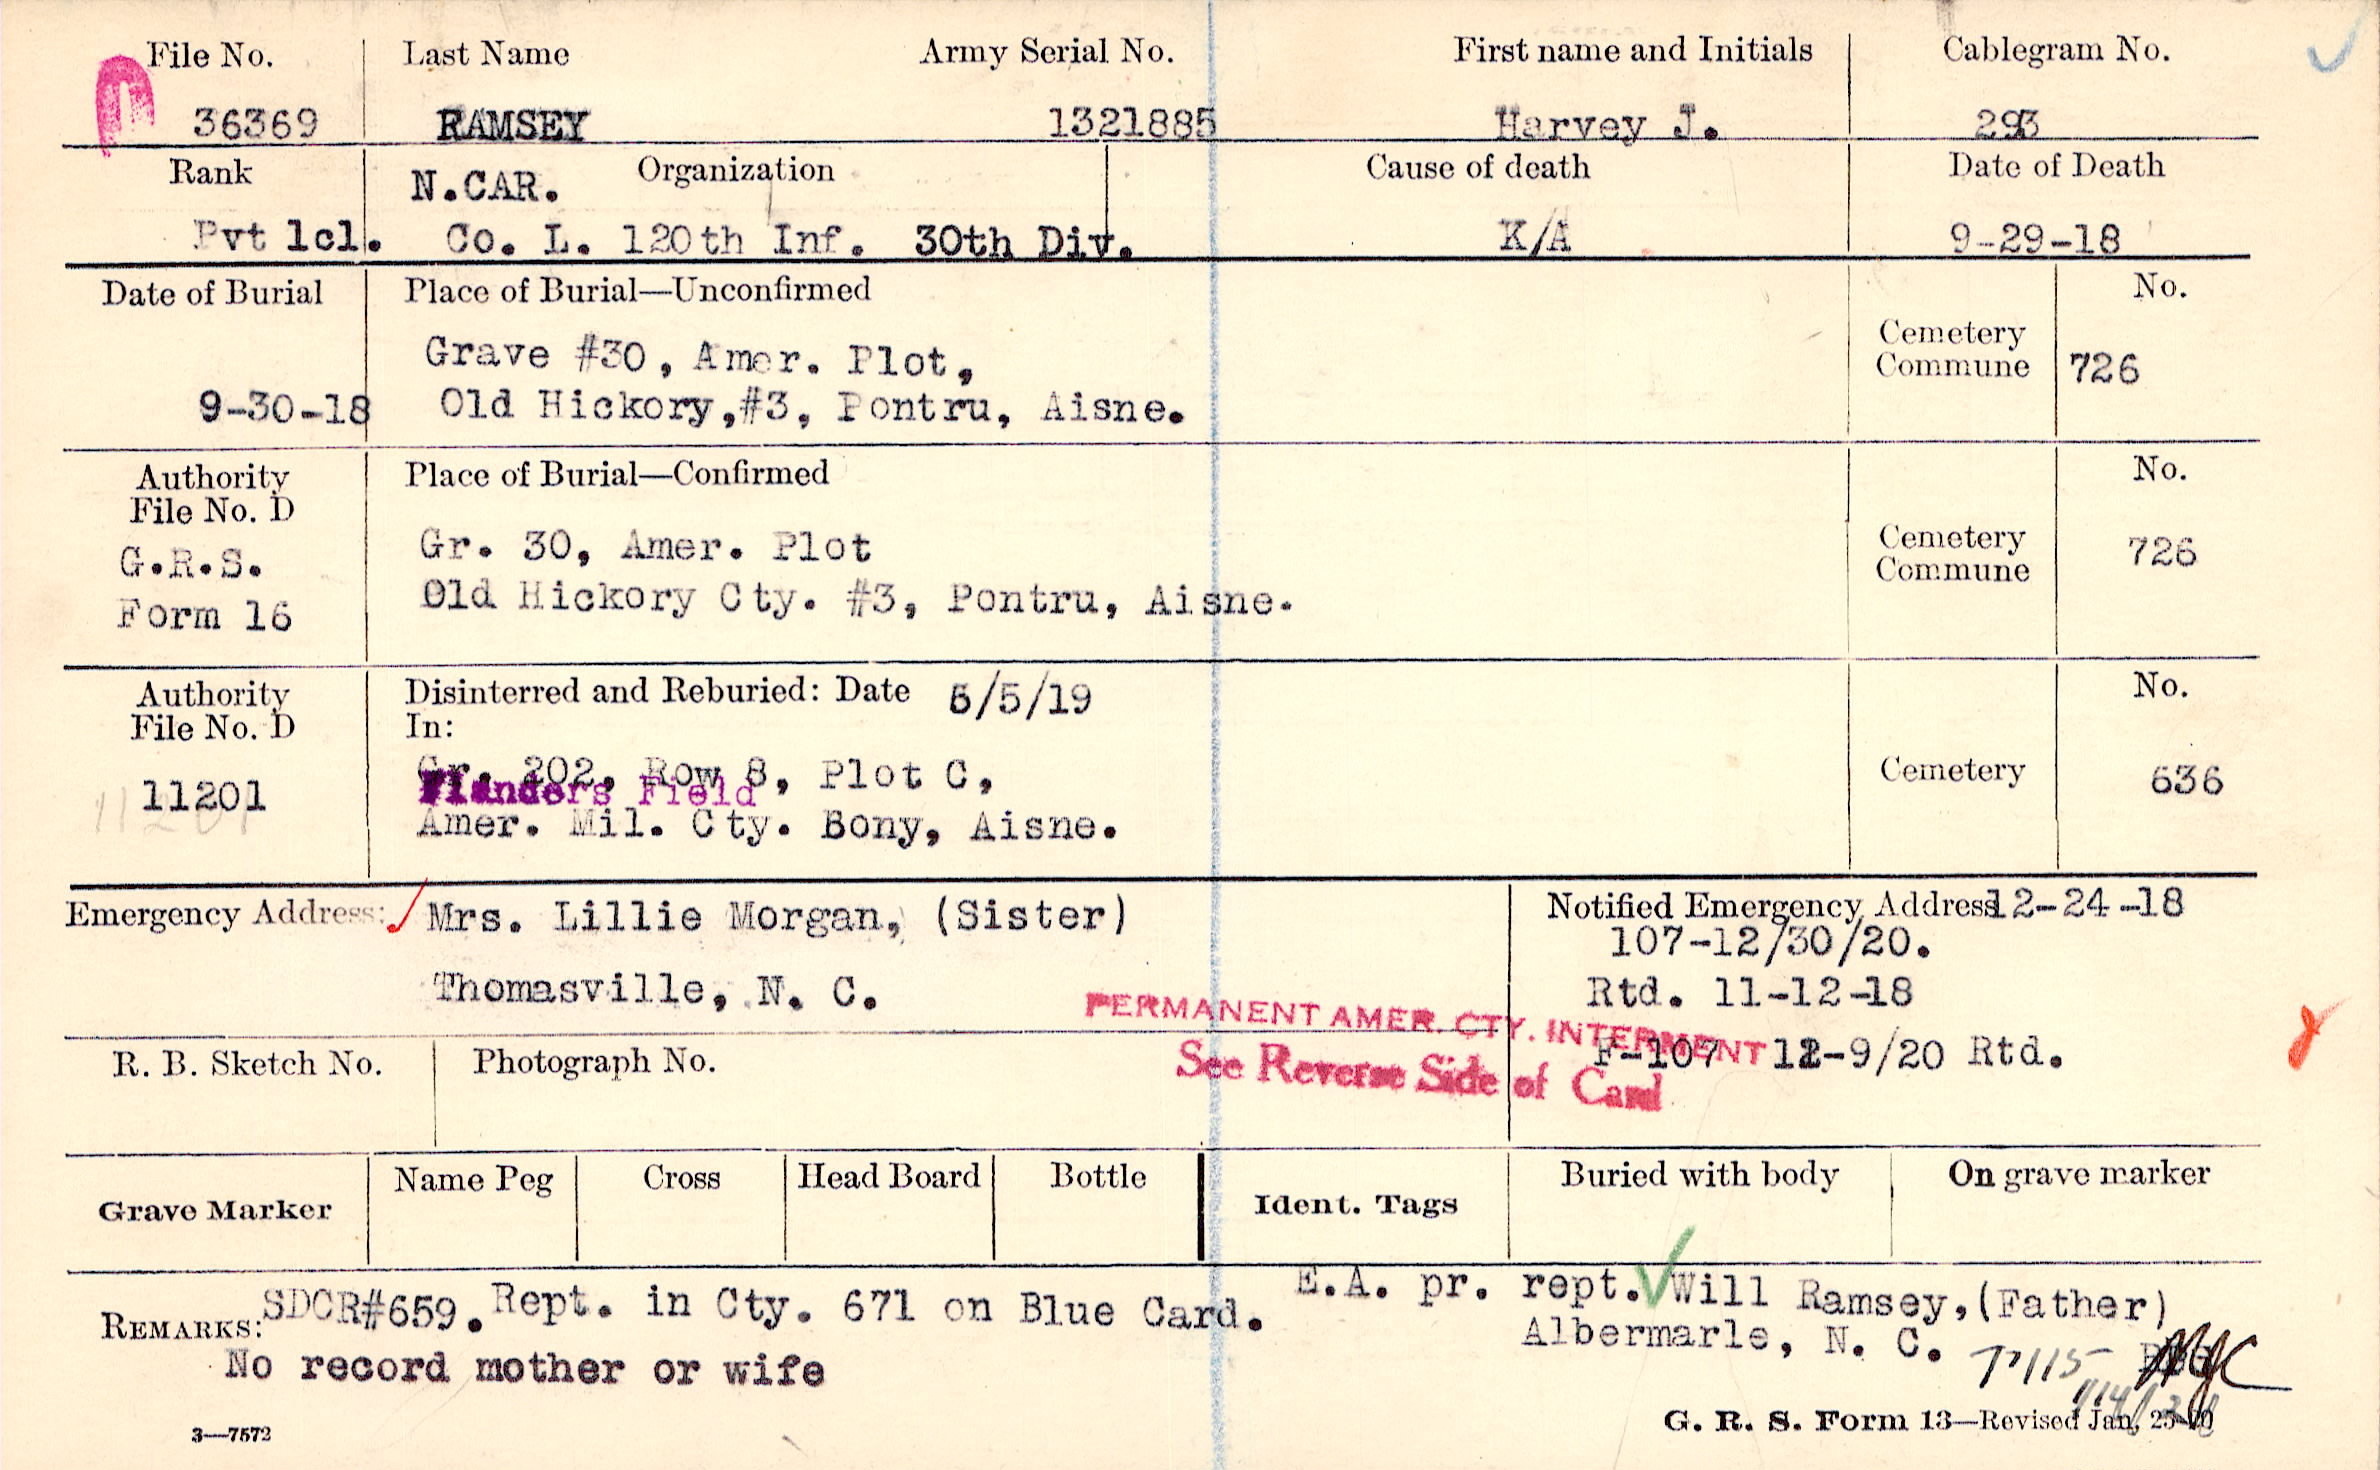 File No. Last Name Army Serial No. First name and Initials Cablegram No.
36369 RAMSEY 1321885 Harvey J. 293
Rank Organization Cause of death Date of Death
N.CAR.
Pvt 1cl. Co. L. 120th Inf. 30th Div. K/A 9-29-18
Date of Burial Place of Burial—Unconfirmed No.
Grave #30, Amer. Plot, Cemetery Commune 726
9-30-18 Old Hickory,#3, Pontru, Aisne.
Authority File No. D Place of Burial—Confirmed No.
G.R.S. Gr. 30, Amer. Plot Cemetery Commune 726
Form 16 Old Hickory Cty. #3, Pontru, Aisne.
Authority File No. D Disinterred and Reburied: Date 5/19 No.
In:
Gr. 202, Row 8, Plot C,
11201 Flanders Field Cemetery 636
Amer. Mil. Cty. Bony, Aisne.
Emergency Address: Mrs. Lillie Morgan, (Sister) Notified Emergency Address 12-24-18
107-12/30/20.
Thomasville, N. C. Rtd. 11-12-18
PERMANENT AMER. CTY. INTERMENT
R. B. Sketch No. Photograph No. F-107 Rtd.
See Reverse Side of Card
Grave Marker Name Peg Cross Head Board Bottle Ident. Tags Buried with body On grave marker
REMARKS: SDCR#659. Rept. in Cty. 671 on Blue Card. E.A. pr. rept. Will Ramsey,(Father)
Albermarle, N. C.
No record mother or wife
3—7572 G. R. S. Form 13—Revised Jan, 25